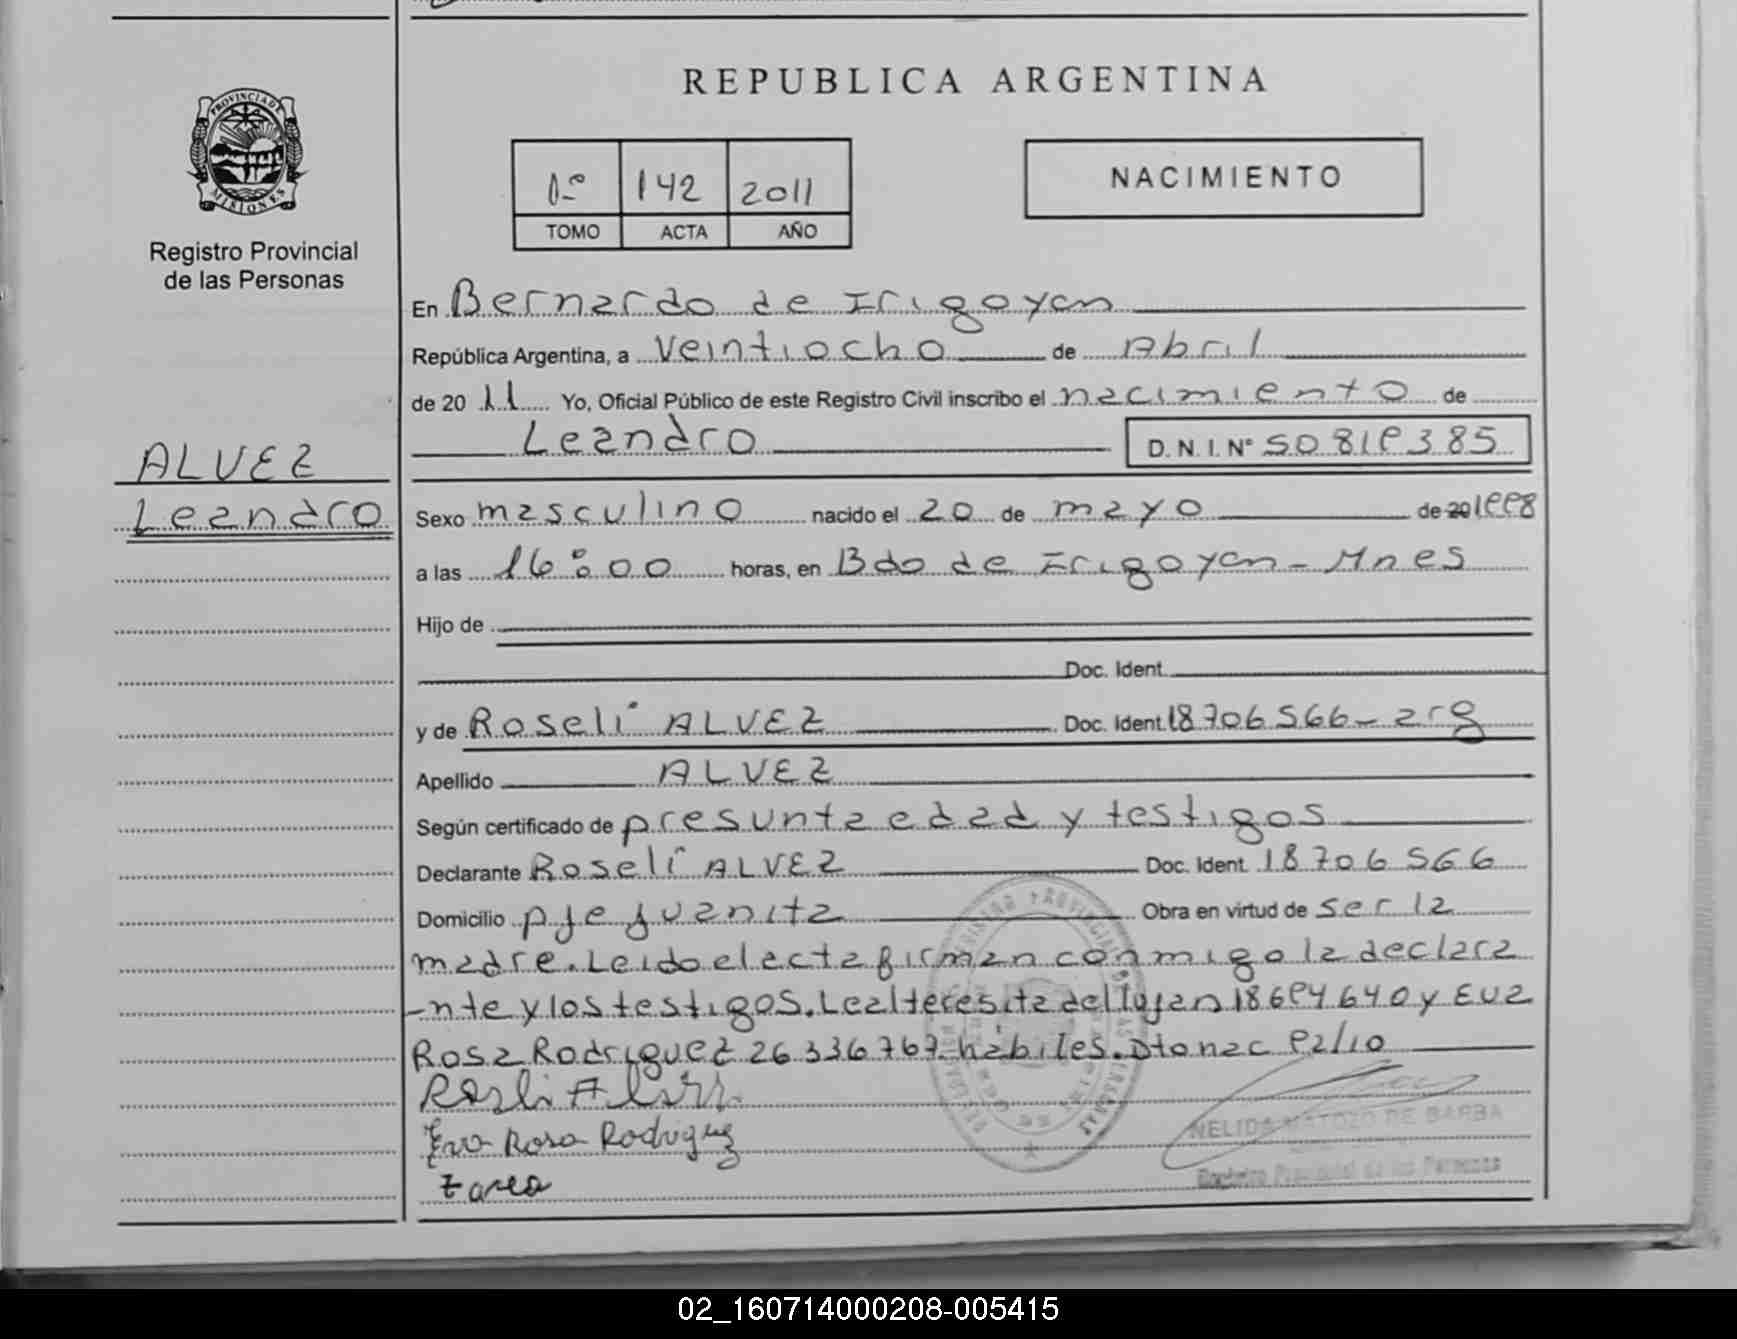 REPUBLICA ARGENTINA
PROVINCIA DE
MISIONES
Registro Provincial
de las Personas
1º 142 2011
TOMO ACTA AÑO
NACIMIENTO
En Bernardo de Irigoyen
República Argentina, a Veintiocho de Abril
de 20 11 Yo, Oficial Público de este Registro Civil inscribo el nacimiento de
Leandro D.N.I. Nº 50819385
ALVEZ
Leandro
Sexo masculino nacido el 20 de mayo de 20 1998
a las 16:00 horas, en Bdo de Irigoyen - Mnes
Hijo de
Doc. Ident.
y de Roselí ALVEZ Doc. Ident. 18706566 - arg
Apellido ALVEZ
Según certificado de presunta edad y testigos
Declarante Roselí ALVEZ Doc. Ident. 18706566
Domicilio pje juanita Obra en virtud de ser la
madre. Leido el acta firman conmigo la declara
-nte y los testigos. Leal teresita del lujan 18694640 y Eva
Rosa Rodriguez 26336767 habiles. Dto nac 92/10
Eva Rosa Rodriguez
NELIDA MATOZO DE BARBA
Registro Provincial de las Personas
02_160714000208-005415